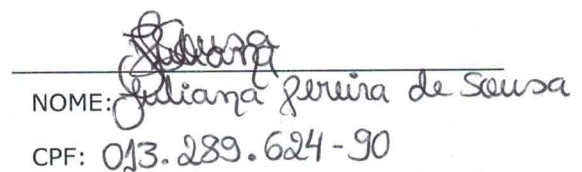 Juliana
NOME: Juliana Pereira de Sousa
CPF: 013.289.624-90